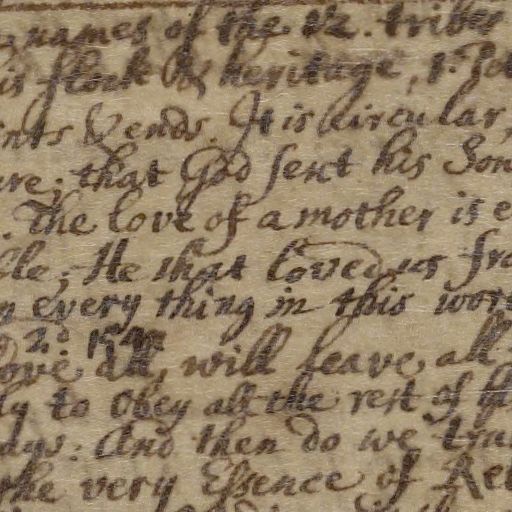 names of the 12. tribes
is flock & heritage, 1. Pet
ints & ends. It is circular,
ere; that God sent his Son
. The love of a mother is e
ble; He that loved us fro
n every thing in this wor
2d
love all, will leave all
ly to obey all the rest of h
dgs: And then do we tra
the very Essence of Rel